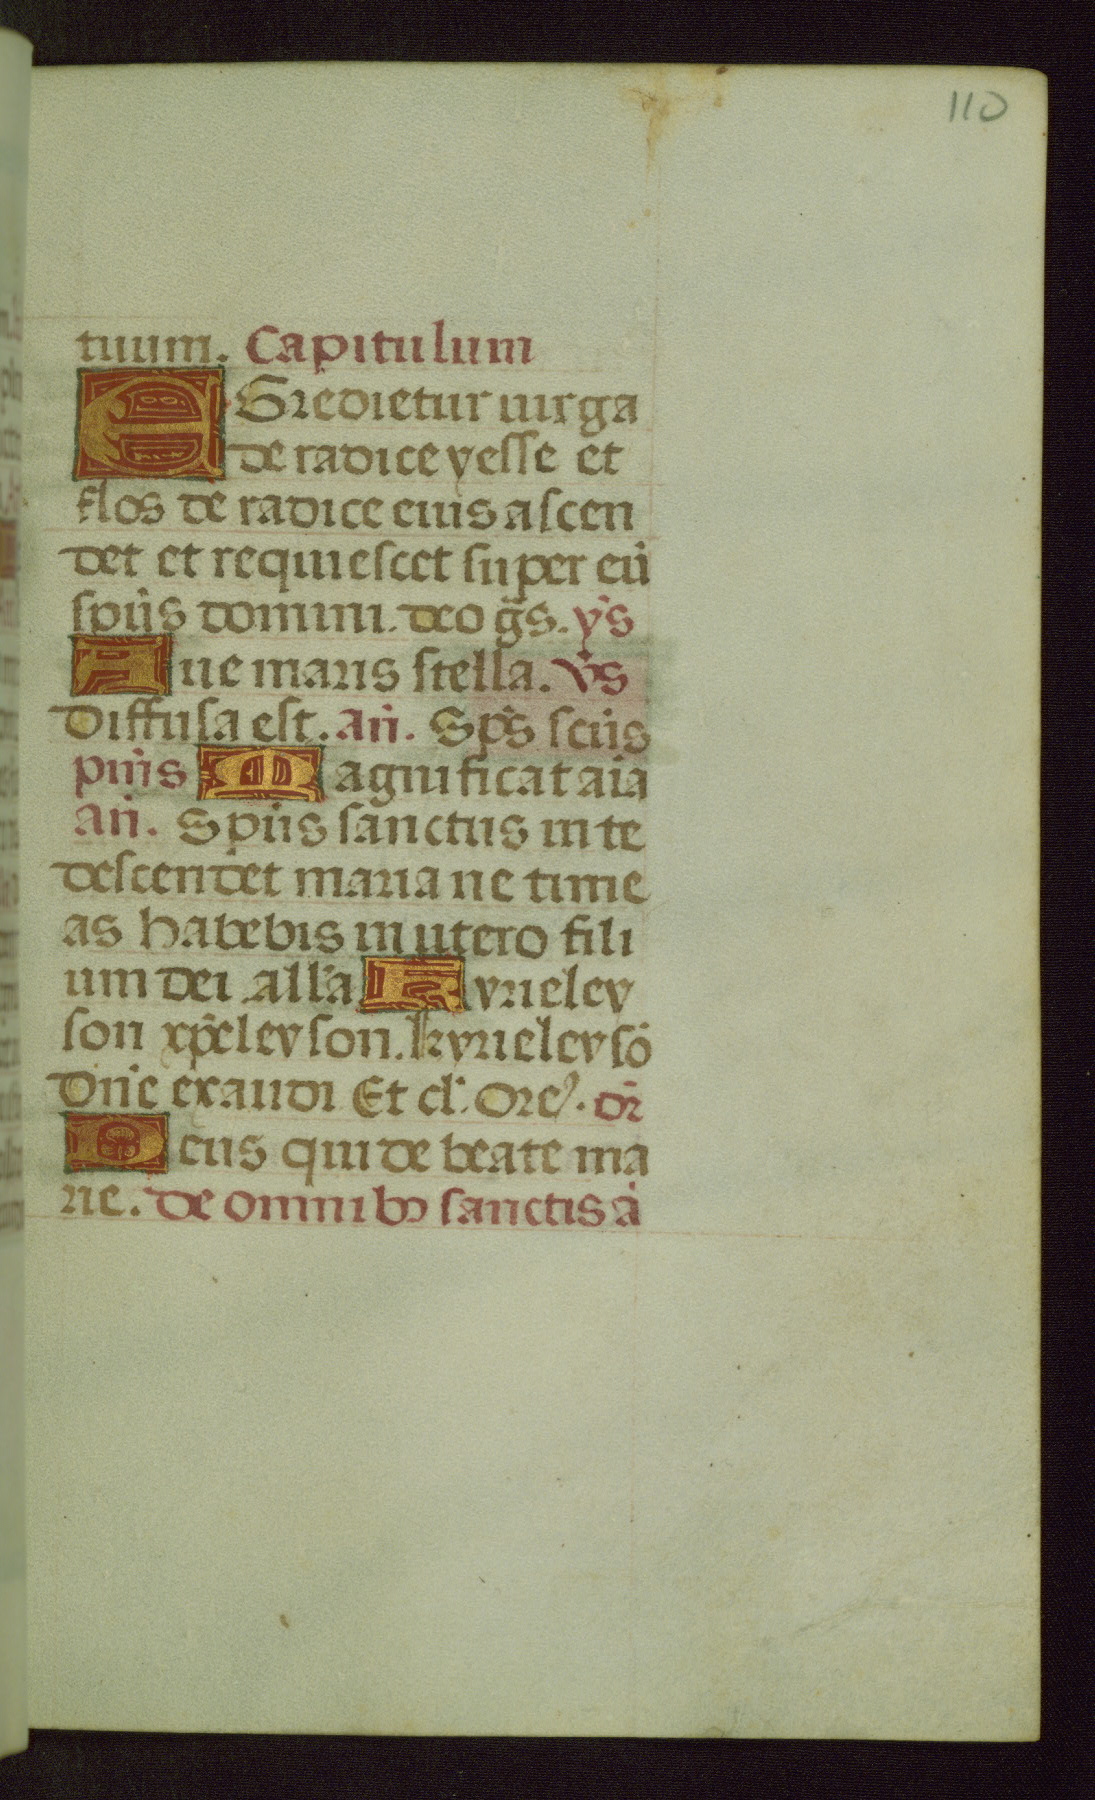 110
tuum. Capitulum
EGredietur uirga
de radice yesse et
flos de radice eius ascen
det et requiescet super eũ
spũs domini. deo g̃s. ỹs
Aue maris stella. v̾s
Diffusa est. añ. Sp̃s scũs
pm̃s Magnificat aĩa
añ. Spũs sanctus in te
descendet maria ne time
as habebis in utero fili
um dei all̃a Kyrieley
son xp̃eleyson. kyrieleysõ
Dñe exaudi Et cl̃. Ore. or̃
Deus qui de beate ma
rie. de omnibꝫ sanctis ã